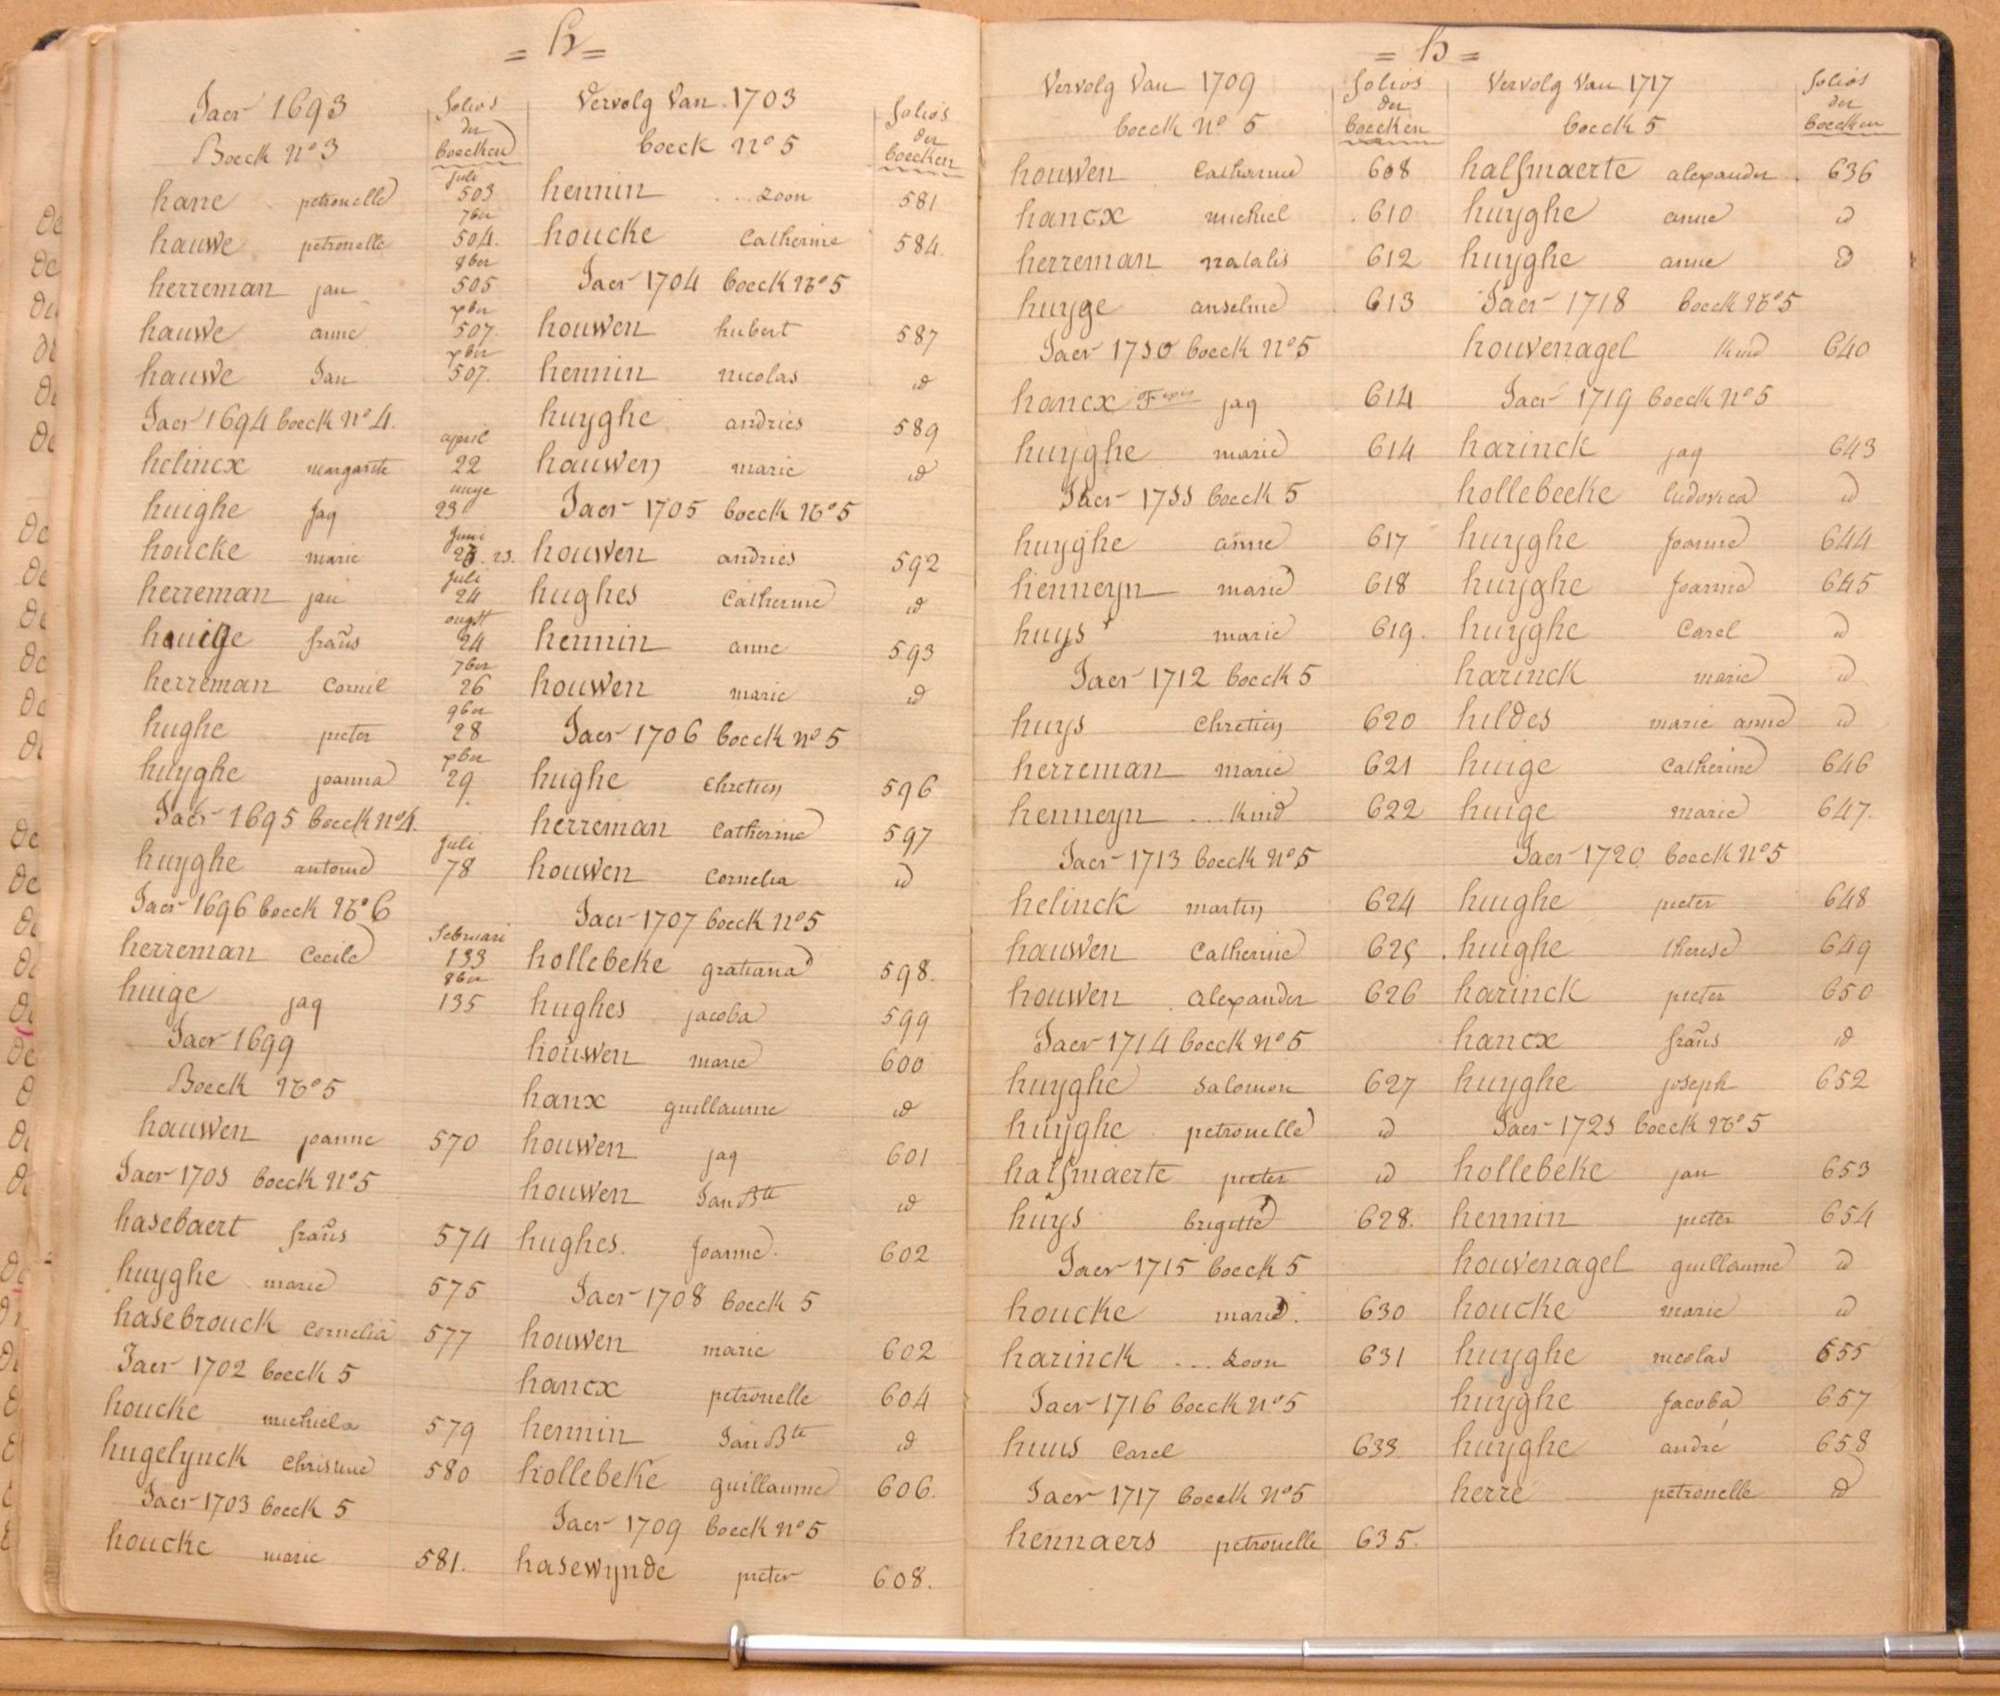 = h =
Jaer 1693
Boeck No 3
folios
der
boecken
hane petronelle juli 503
hauwe petronelle 7ber 504.
herreman jan 8ber 505
hauwe anne xber 507.
hauwe Jan xber 507.
Jaer 1694 boeck No 4.
helincx margarite april 22
huighe Jaq meye 23
houcke marie Juni 23.
herreman jan juli 24
frans ougst 24
herreman Cornil 7ber 26
hughe pieter 9ber 28
huyghe joanna xber 29
Jaer 1695 boeck No 4.
huyghe antoine juli 78
Jaer 1696 boeck No 6
herreman Cecile februari 133
huige jaq 8ber 135
Jaer 1699
Boeck No 5
hauwen joanne 570
Jaer 1701 boeck No 5
hasebaert frans 574
huyghe marie 575
hasebrouck Cornelia 577
Jaer 1702 boeck 5
houcke michiela 579
hugelynck Christine 580
Jaer 1703 boeck 5
houcke marie 581.
Vervolg Van 1703
boeck No 5
folios
der
boecken
hennin ... zoon 581
houcke Catherine 584.
Jaer 1704 boeck No 5
houwen hubert 587
hennin nicolas id
huyghe andries 589
hauwen marie id
Jaer 1705 boeck No 5
houwen andries 592
hughes Catherine id
hennin anne 593
houwen marie id
Jaer 1706 boeck No 5
hughe Chretien 596
herreman Catherine 597
houwen Cornelia id
Jaer 1707 boeck No 5
hollebeke gratiana 598.
hughes jacoba 599
houwen marie 600
hanx guillaume id
houwen jaq 601
houwen Jan Bte id
hughes. Joanne. 602
Jaer 1708 boeck 5
houwen marie 602
hancx petronelle 604
hennin Jan Bte id
hollebeke guillaume 606.
Jaer 1709 boeck No 5
hasewynde pieter 608.
= h =
Vervolg Van 1709
boeck No 5
folios
der
boecken
houwen Catharine 608
hancx michiel 610
herreman natalis 612
huyge anselme 613
Jaer 1710 boeck No 5
hancx jaq 614
huyghe marie 614
Jaer 1711 boeck 5
huyghe anne 617
henneyn marie 618
huys marie 619.
Jaer 1712 boeck 5
huys Chretien 620
herreman marie 621
henneyn ... kind 622
Jaer 1713 boeck No 5
helinck martin 624
hauwen Catherine 625
houwen alexander 626
Jaer 1714 boeck No 5
huyghe Salomon 627
huyghe petronelle id
halfmaerte pieter id
huys brigitte 628.
Jaer 1715 boeck 5
houcke marie. 630
harinck ... zoon 631
Jaer 1716 boeck No 5
huus Carel 633
Jaer 1717 boeck No 5
hennaers petronelle 635.
Vervolg Van 1717
boeck 5
folios
der
boecken
halfmaerte alexander 636
huyghe anne id
huyghe anne id
Jaer 1718 boeck No 5
houvenagel kind 640
Jaer 1719 boeck No 5
harinck jaq 643
hollebecke ludovica id
huyghe Joanne 644
huyghe Joanne 645
huyghe Carel id
harinck marie id
hildes marie anne id
huige Catherine 646
huige marie 647.
Jaer 1720 boeck No 5
huighe pieter 648
huighe therese 649
harinck pieter 650
hancx frans id
huyghe joseph 652
Jaer 1721 boeck No 5
hollebeke jan 653
hennin pieter 654
houvenagel guillaume id
houcke marie id
huyghe nicolas 655
huyghe Jacoba 657
huyghe andré 658
herre petronelle id